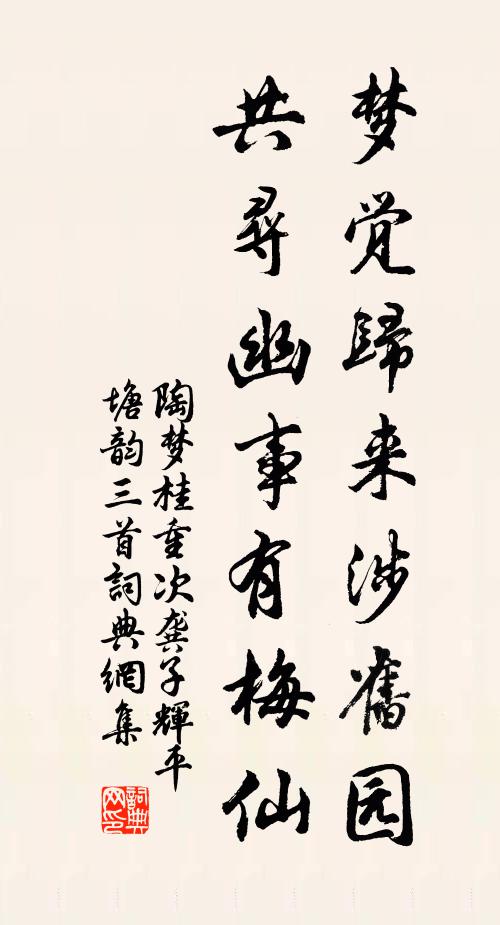 梦觉歸来涉舊园
共尋幽事有梅仙
陶梦桂重次龚子輝平
塘韵三首詞典網集
詞典
网印